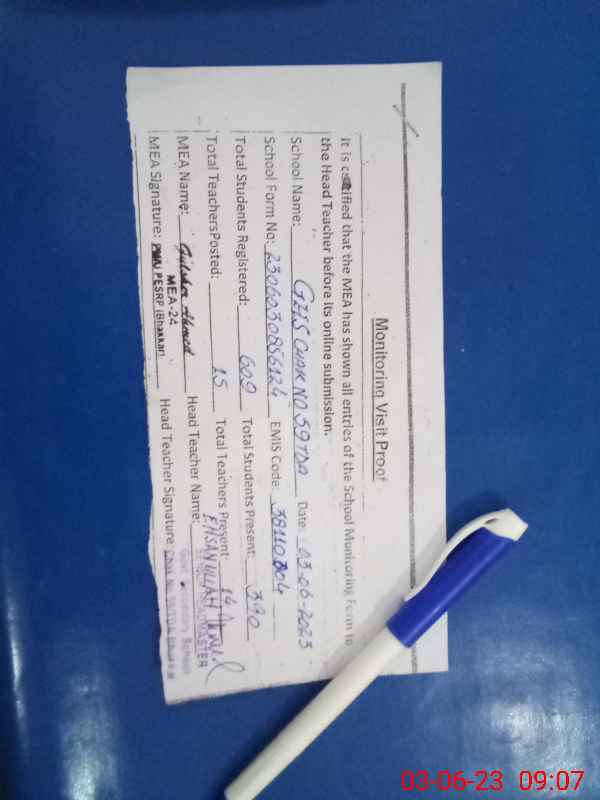 Monitoring Visit Proof
It is certified that the MEA has shown all entries of the School Monitoring Form to
the Head Teacher before its online submission.
School Name: GHS CHAK NO 59 TDA Date: 03-06-2023
School Form No: 23060308S6124 EMIS Code: 38110304
Total Students Registered: 609 Total Students Present: 390
Total TeachersPosted: 15 Total Teachers Present: 14
MEA Name: Gulsher Ahmed Head Teacher Name: EHSAN ULLAH
MEA-24
MEA Signature: PESRP (Bhakkar) Head Teacher Signature:
HEADMASTER
School
03-06-23 09:07